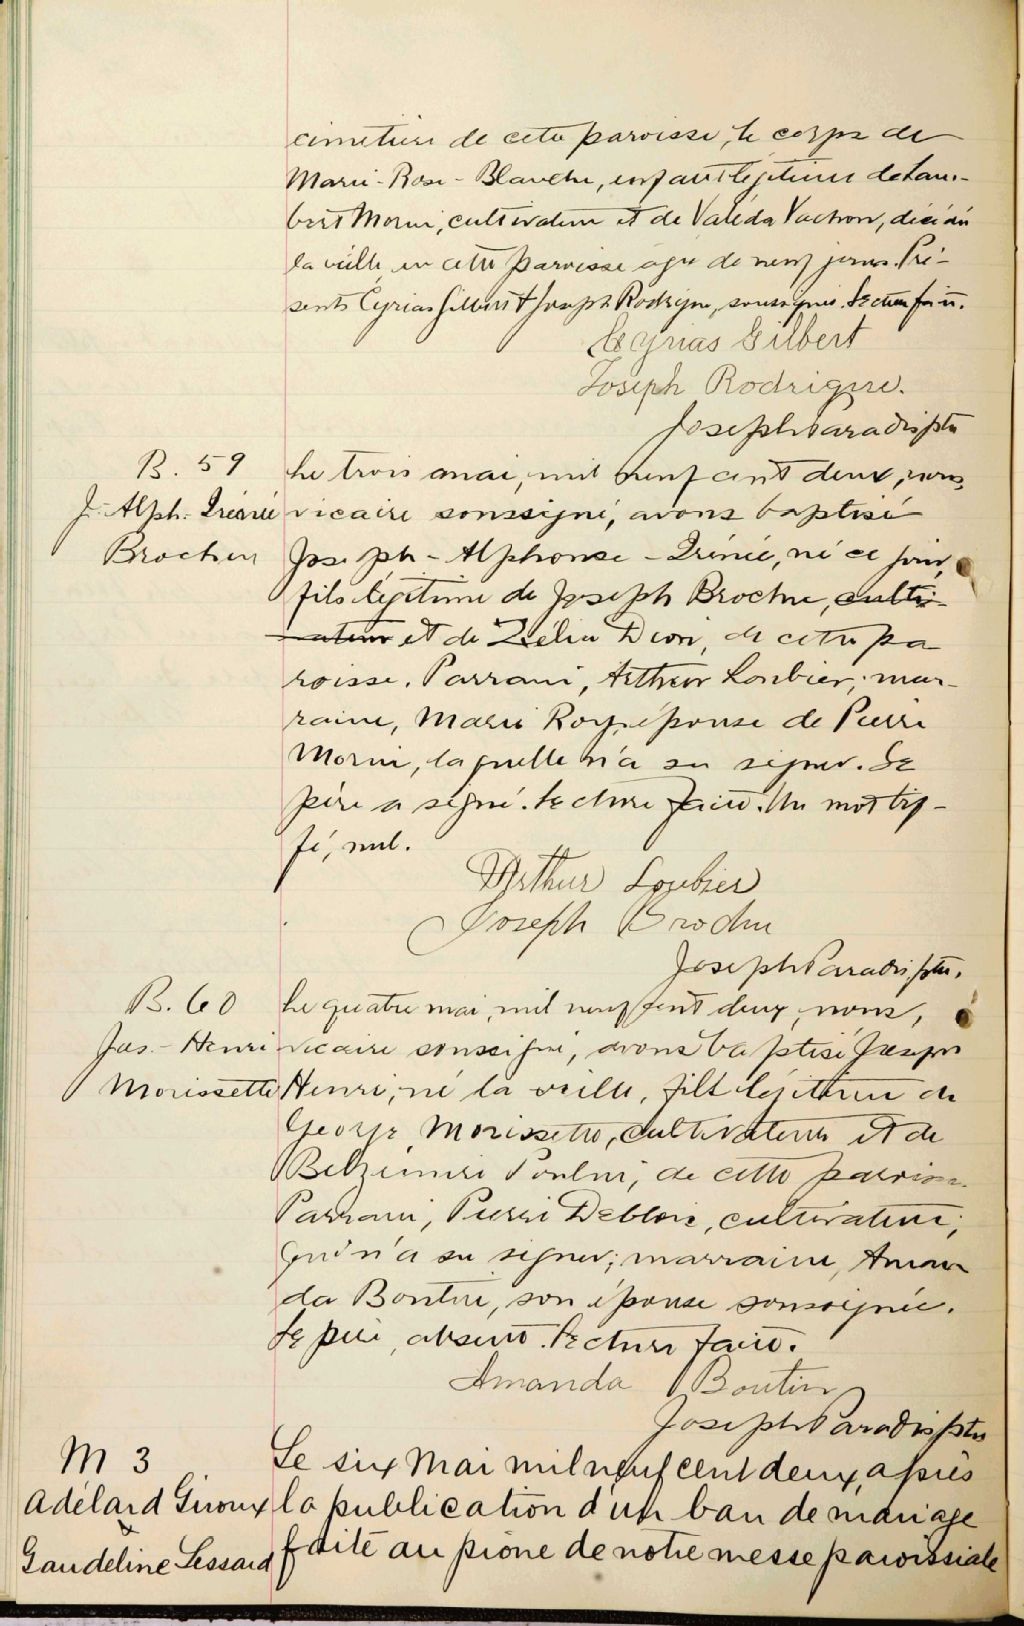 cimetière de cette paroisse, le corps de
Marie-Rose-Blanche, enfant légitime de Lam-
bert Morin, cultivateur et de Valéda Vachon, décédée
la veille en cette paroisse âgée de neuf jours. Pré-
sents Cyrias Gilbert & Joseph Rodrigue, soussignés. Lecture faite.
Cyrias Gilbert
Joseph Rodrigue.
Joseph Paradis ptre
B. 59
J.-Alph.-Irénée
Brochu
Le trois mai, mil neuf cent deux, nous
vicaire soussigné, avons baptisé
Joseph-Alphonse-Irénée, né ce jour,
fils légitime de Joseph Brochu, culti-
vateur et de Zélia Dion, de cette pa
roisse. Parrain, Arthur Loubier; mar-
raine, Marie Roy, épouse de Pierre
Morin, laquelle n'a su signer. Le
père a signé. Lecture faite. Un mot bif-
fé, nul.
Arthur Loubier
Joseph Brochu
Joseph Paradis ptre.
B. 60
Jos.-Henri
Morissette
Le quatre mai, mil neuf cent deux, nous,
vicaire soussigné, avons baptisé Joseph
Henri, né la veille, fils légitime de
George Morissette, cultivateur et de
Belzémire Poulin, de cette paroisse.
Parrain, Pierre Deblois, cultivateur,
qui n'a su signer; marraine, Aman
da Boutin, son épouse soussignée.
Le père, absent. Lecture faite.
Amanda Boutin
Joseph Paradis ptre
M 3
Adélard Giroux
&
Gaudeline Lessard
Le six Mai mil neuf cent deux, après
la publication d'un ban de mariage
faite au prône de notre messe paroissiale